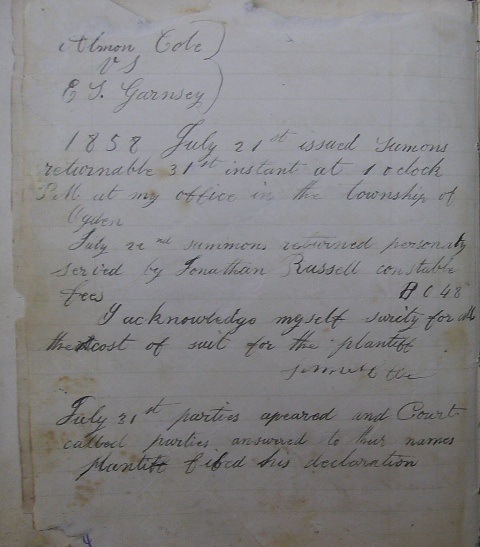 Almon Cole
VS
E S. Garnsey
1858 July 21st issued Sumons
returnable 31st instant at 1 oclock
P.M at my office in the township of
Ogden
July 22nd summons returned personaly
served by Jonathan Russell constable
fees 0 48
I acknowledge myself surity for all
the cost of suit for the plantiff
July 31st parties apeared and Court
called parties answered to their names
plantiff filed his declaration
4